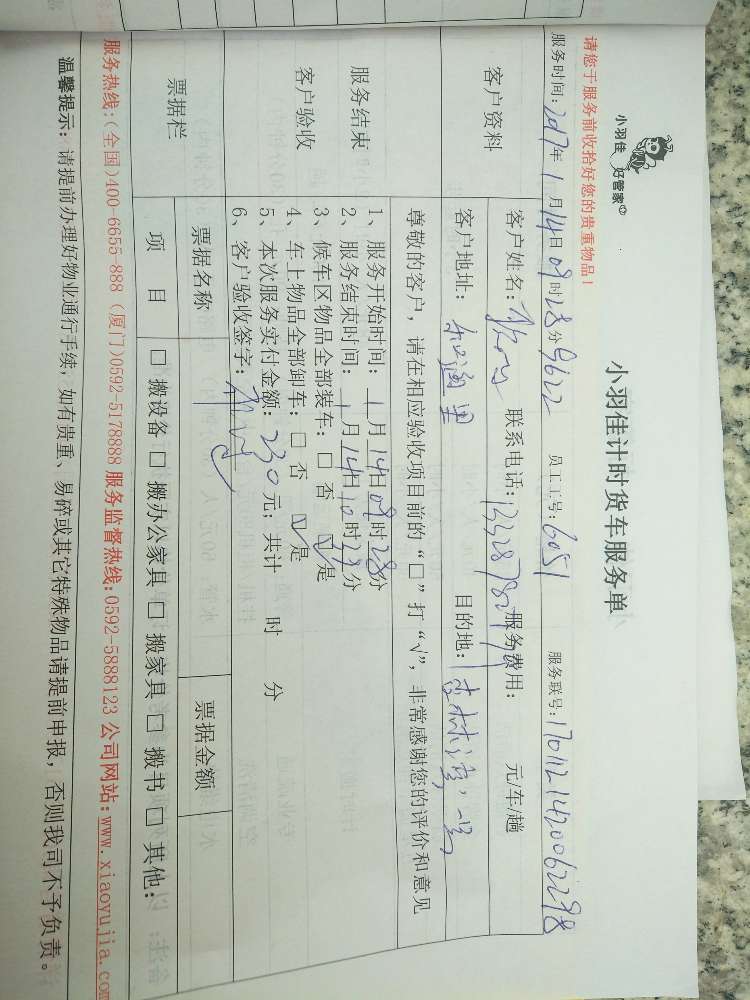 小羽佳 好管家
小羽佳计时货车服务单
请您于服务前收拾好您的贵重物品！
服务时间：2017年1月14日09时28分9622 员工工号：6051 服务联号：
客户资料
客户姓名： 联系电话： 服务费用： 元/车/趟
客户地址： 目的地：
尊敬的客户，请在相应验收项目前的“□”打“√”，非常感谢您的评价和意见
服务结束
客户验收
1、服务开始时间：1月14日09时28分
2、服务结束时间：1月14日10时29分
3、候车区物品全部装车：□ 否 ☑ 是
4、车上物品全部卸车：□ 否 ☑ 是
5、本次服务实付金额：230元；共计 时 分
6、客户验收签字：
票据栏
票据名称 票据金额
项 目 □ 搬设备 □ 搬办公家具 □ 搬家具 □ 搬书 □ 其他：
服务热线：(全国)400-6655-888 (厦门)0592-5178888 服务监督热线：0592-5888123 公司网站：www.xiaoyujia.com
温馨提示：请提前办理好物业通行手续；如有贵重、易碎或其它特殊物品请提前申报，否则我司不予负责。